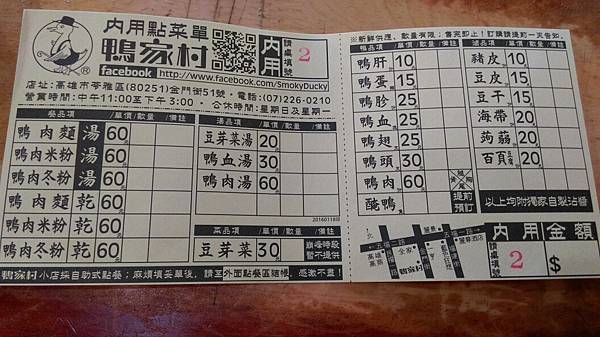 內用點菜單
鴨家村
內用
請桌填號
2
facebook http://www.facebook.com/SmokyDucky
店址:高雄市苓雅區(80251)金門街51號・電話:(07)226-0210
營業時間:中午11:00至下午3:00・公休時間:星期日及星期一
餐品項/單價/數量/備註
鴨肉麵 湯 60元
鴨肉米粉 湯 60元
鴨肉冬粉 湯 60元
鴨肉麵 乾 60元
鴨肉米粉 乾 60元
鴨肉冬粉 乾 60元
湯品項/單價/數量/備註
豆芽菜湯 20元
鴨血湯 30元
鴨肉湯 60元
20160118版
菜品項/單價/數量/備註
豆芽菜 30元 巔峰時段暫不提供
鴨家村小店採自助式點餐;麻煩填妥單後,請至外面點餐區結帳,感激不盡!
※新鮮供應,數量有限;售完即止!訂購請提前一天告知。
鴨品項/單價/數量/備註
鴨肝 10
鴨蛋 15
鴨胗 25
鴨血 25
鴨翅 25
鴨頭 30
鴨肉 60
醃鴨 提前預訂
滷品項/單價/數量/備註
豬皮 10元
豆皮 15元
豆干 15元
海帶 20元
蒟蒻 20元
百頁 20元
以上均附獨家自製沾醬
五福二路
五福一路
全家
鴨家村
內用金額
請桌填號
2
$